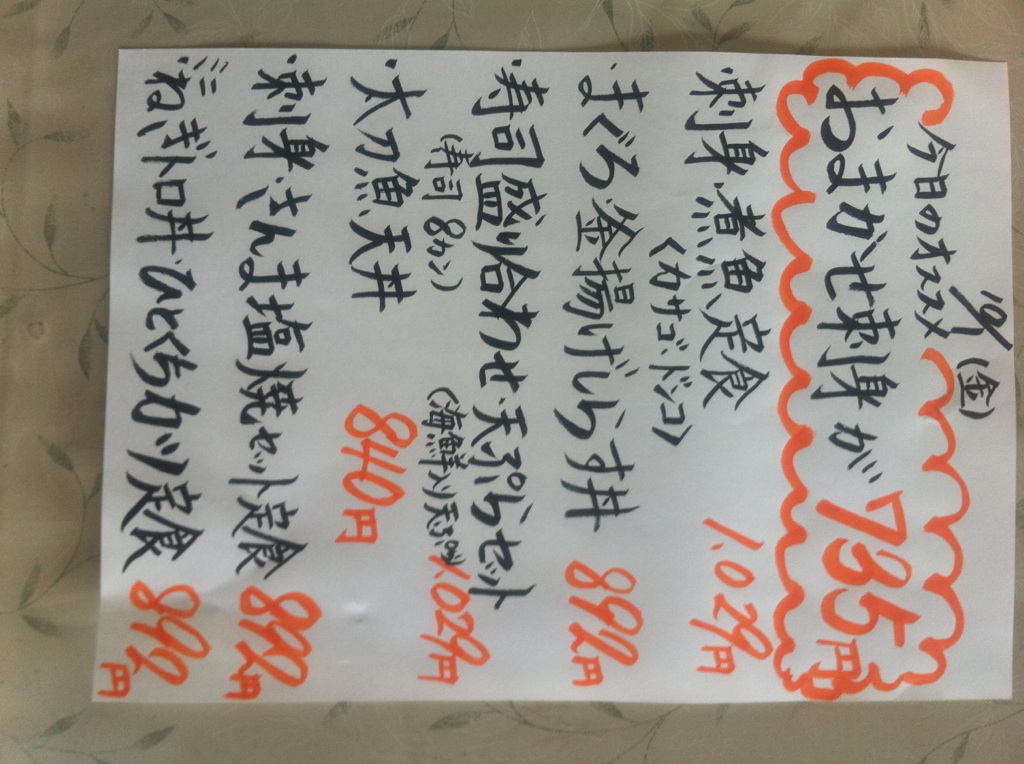 10/9(金)
今日のオススメ
おまかせ刺身が735円
刺身・煮魚定食 1,029円
(カサゴ・ドンコ)
・まぐろ・釜揚げしらす丼 892円
・寿司盛り合わせ・天ぷらセット
(寿司 8カン) (海鮮入り天ぷら) 1,029円
・太刀魚天丼 840円
・刺身・さんま塩焼セット定食 892円
・ミニねぎトロ丼・ひとくちカツ定食
円